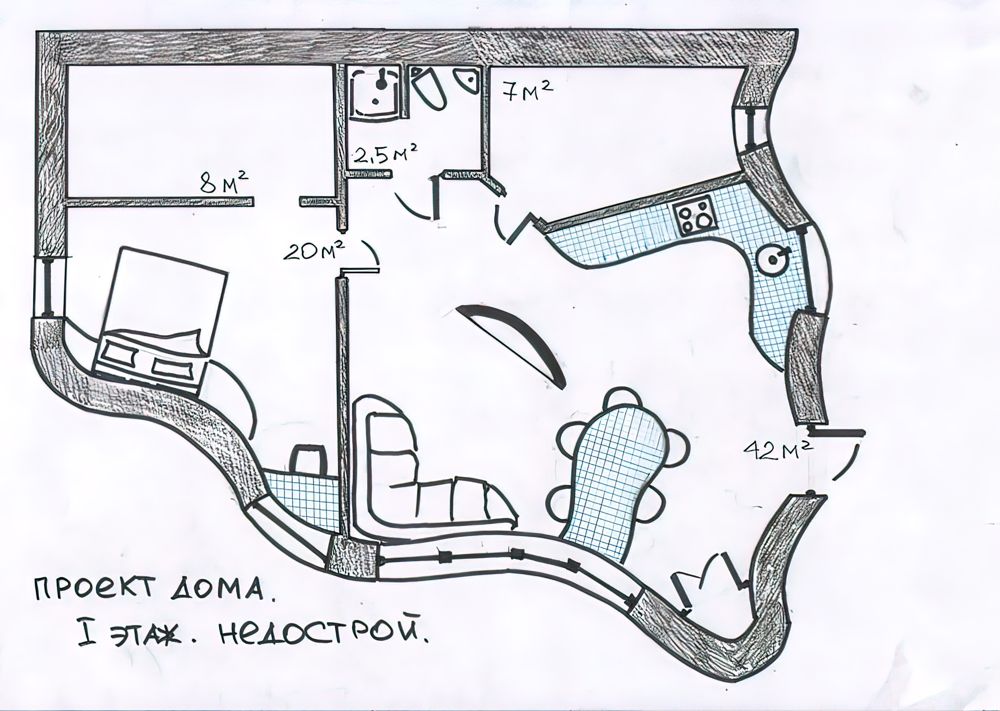 7 м²
2,5 м²
8 м²
20 м²
42 м²
ПРОЕКТ ДОМА.
I ЭТАЖ. НЕДОСТРОЙ.